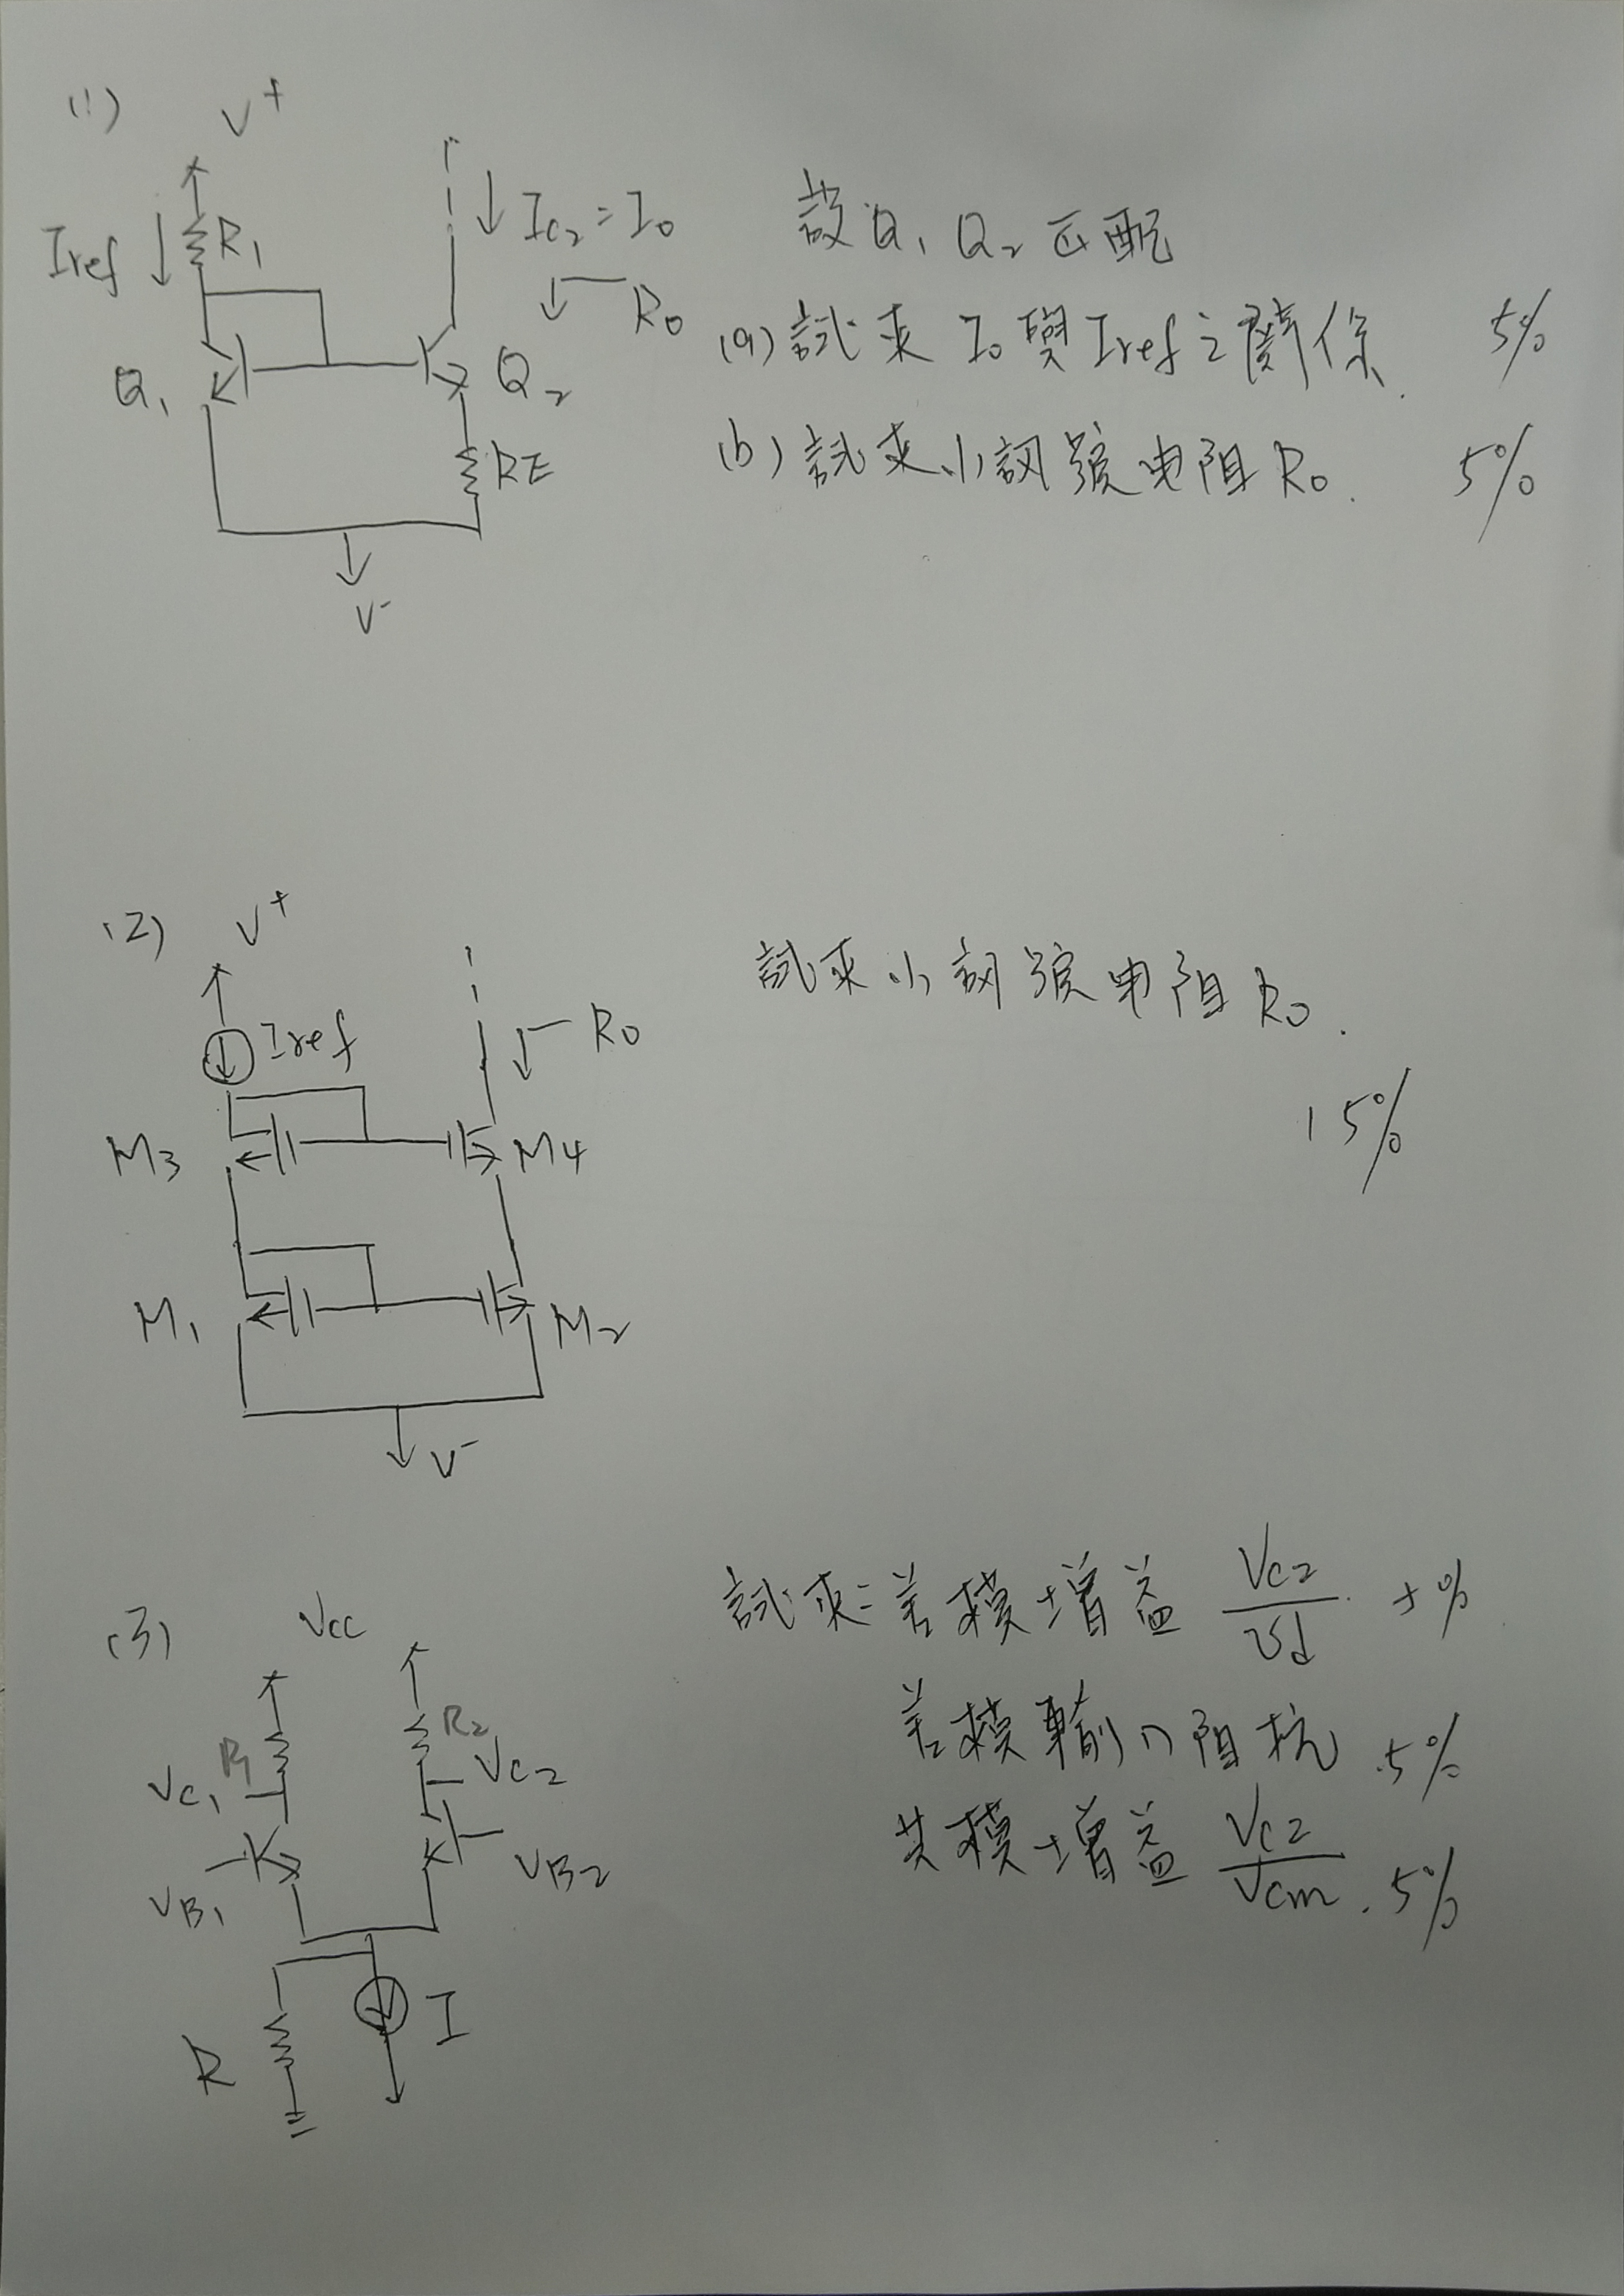 (1)
V+
Iref
R1
Ic2 = Io
Ro
Q1
Q2
RE
V-
設 Q1 Q2 匹配
(a) 試求 Io 與 Iref 之關係. 5%
(b) 試求小訊號电阻 Ro. 5%
(2)
V+
Iref
Ro
M3
M4
M1
M2
V-
試求小訊號电阻 Ro.
15%
(3)
Vcc
R1
R2
Vc1
Vc2
VB1
VB2
R
I
試求: 差模增益 Vc2/vd 5%
差模輸入阻抗 5%
共模增益 Vc2/Vcm. 5%